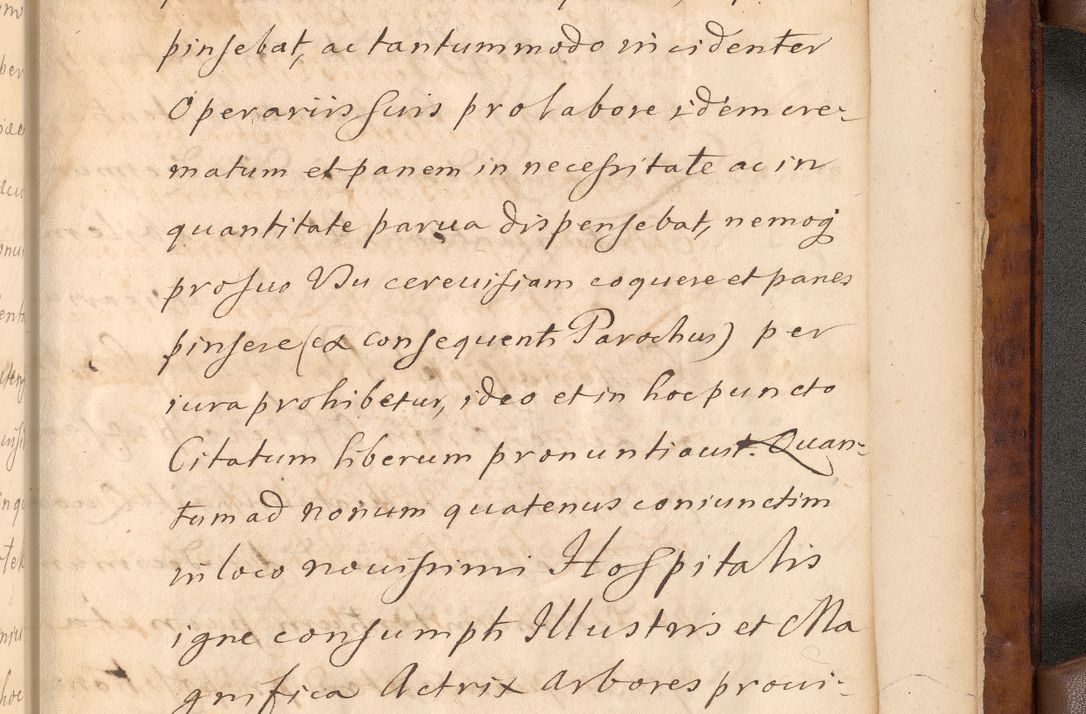 pinsebat, ac tantummodo incidenter
Operariis suis pro labore idem cre-
matum et panem in necessitate ac in
quantitate parua dispensebat, nemoq
pro suo Usu cereuisiam coquere et panes
pinsere (ex consequenti Parochus) per
iura prohibetur, ideo et in hoc puncto
Citatum liberum pronuntiauit. Quan-
tum ad nonum quatenus coniunctim
in loco nouissimi Hospitalis
igne consumpti Illustris et Ma
gnifica Actrix arbores proui-